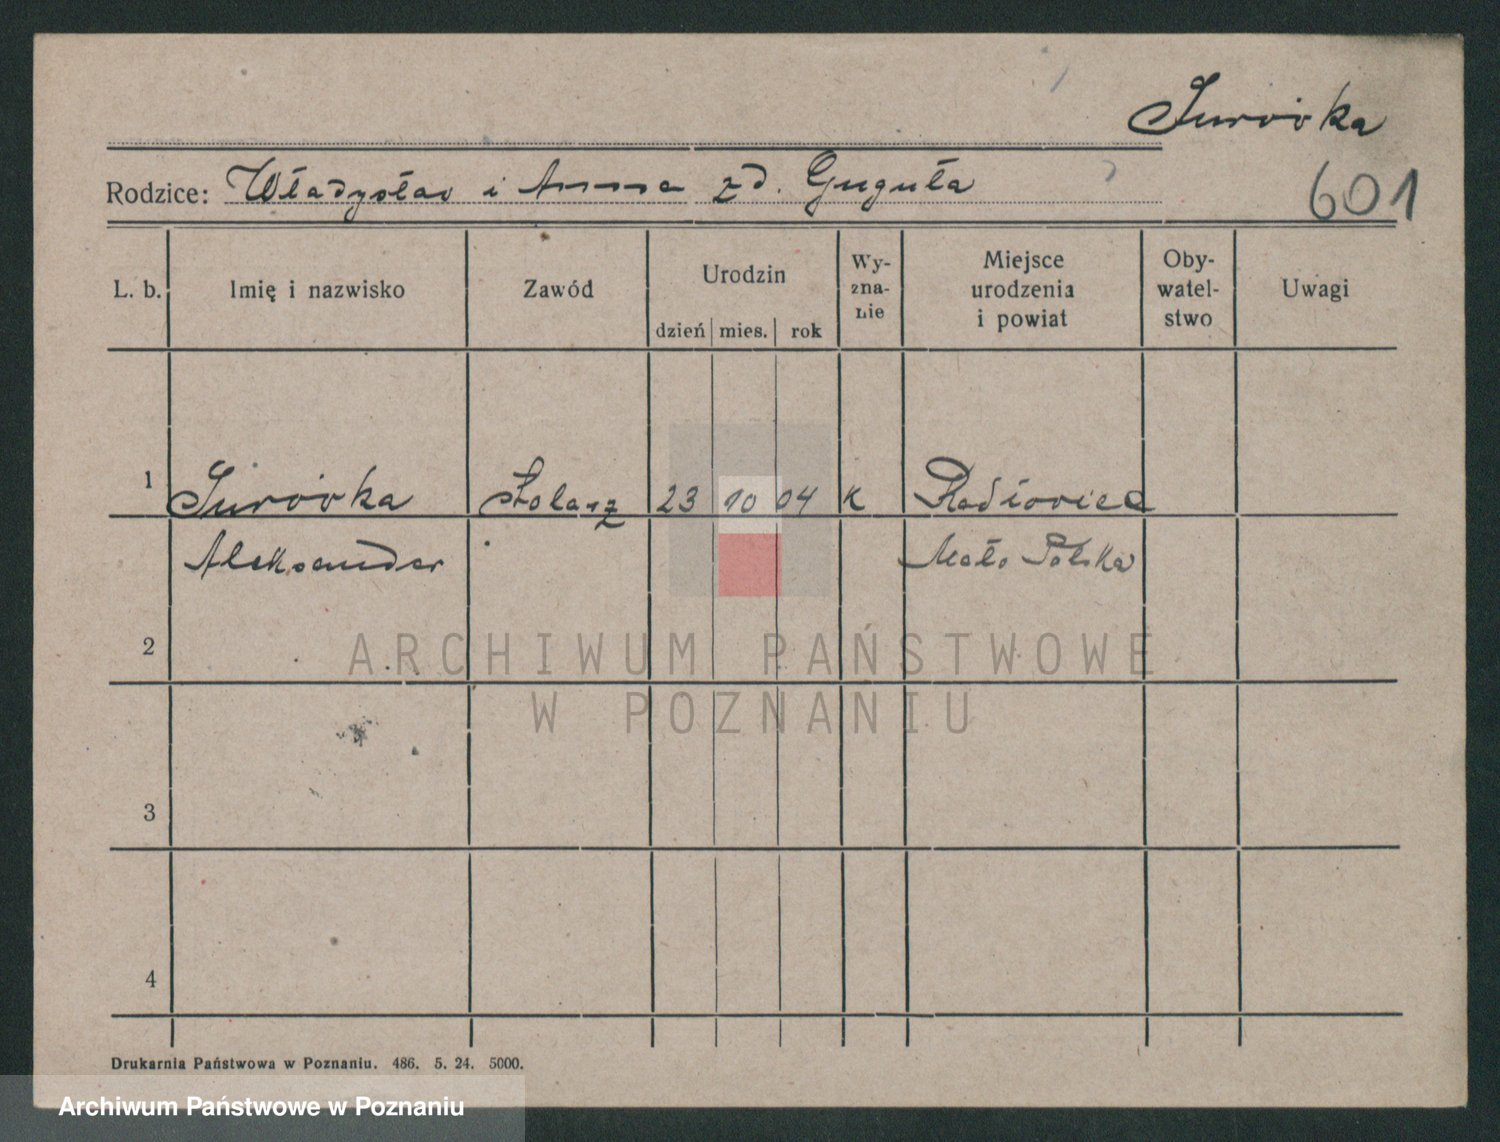 Surówka
Rodzice: Władysław i Anna zd. Guguła
601
L. b. Imię i nazwisko Zawód Urodzin Wy- Miejsce Oby- Uwagi
zna- urodzenia watel-
nie i powiat stwo
dzień mies. rok
1 Surówka Stolarz 23 10 04 K
Aleksander Mało Polska
2
ARCHIWUM PAŃSTWOWE
W POZNANIU
3
4
Drukarnia Państwowa w Poznaniu. 486. 5. 24. 5000.
Archiwum Państwowe w Poznaniu